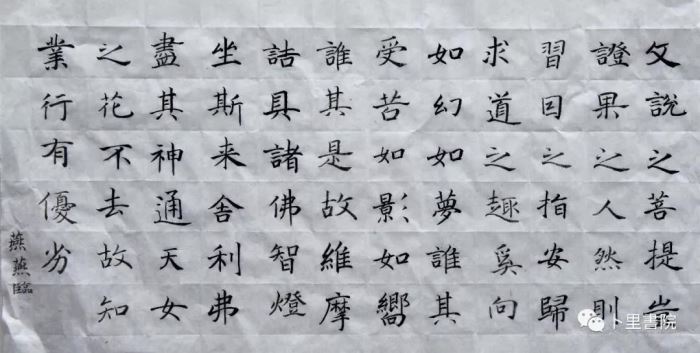 文說之菩提豈
證果之人然則
習囙之指安歸
求道之趣奚向
如幻如夢誰其
受苦如影如嚮
誰其是故維摩
詰具諸佛智燈
坐斯来舍利弗
盡其神通天女
之花不去故知
業行有優劣
燕燕臨
卜里書院